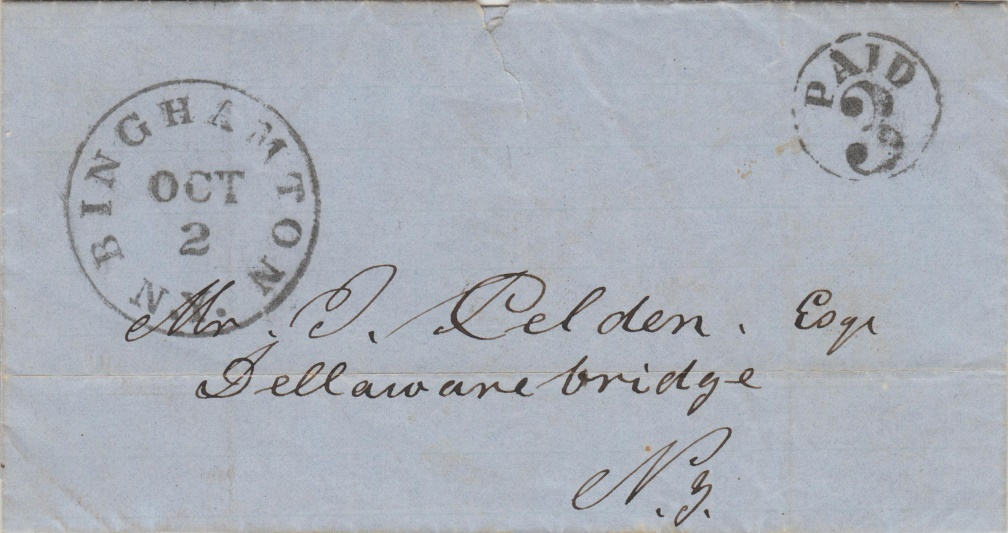 BINGHAMTON N.Y.
OCT
2
PAID
3
Mr. J. Selden. Esqr
Dellaware bridge
N.Y.